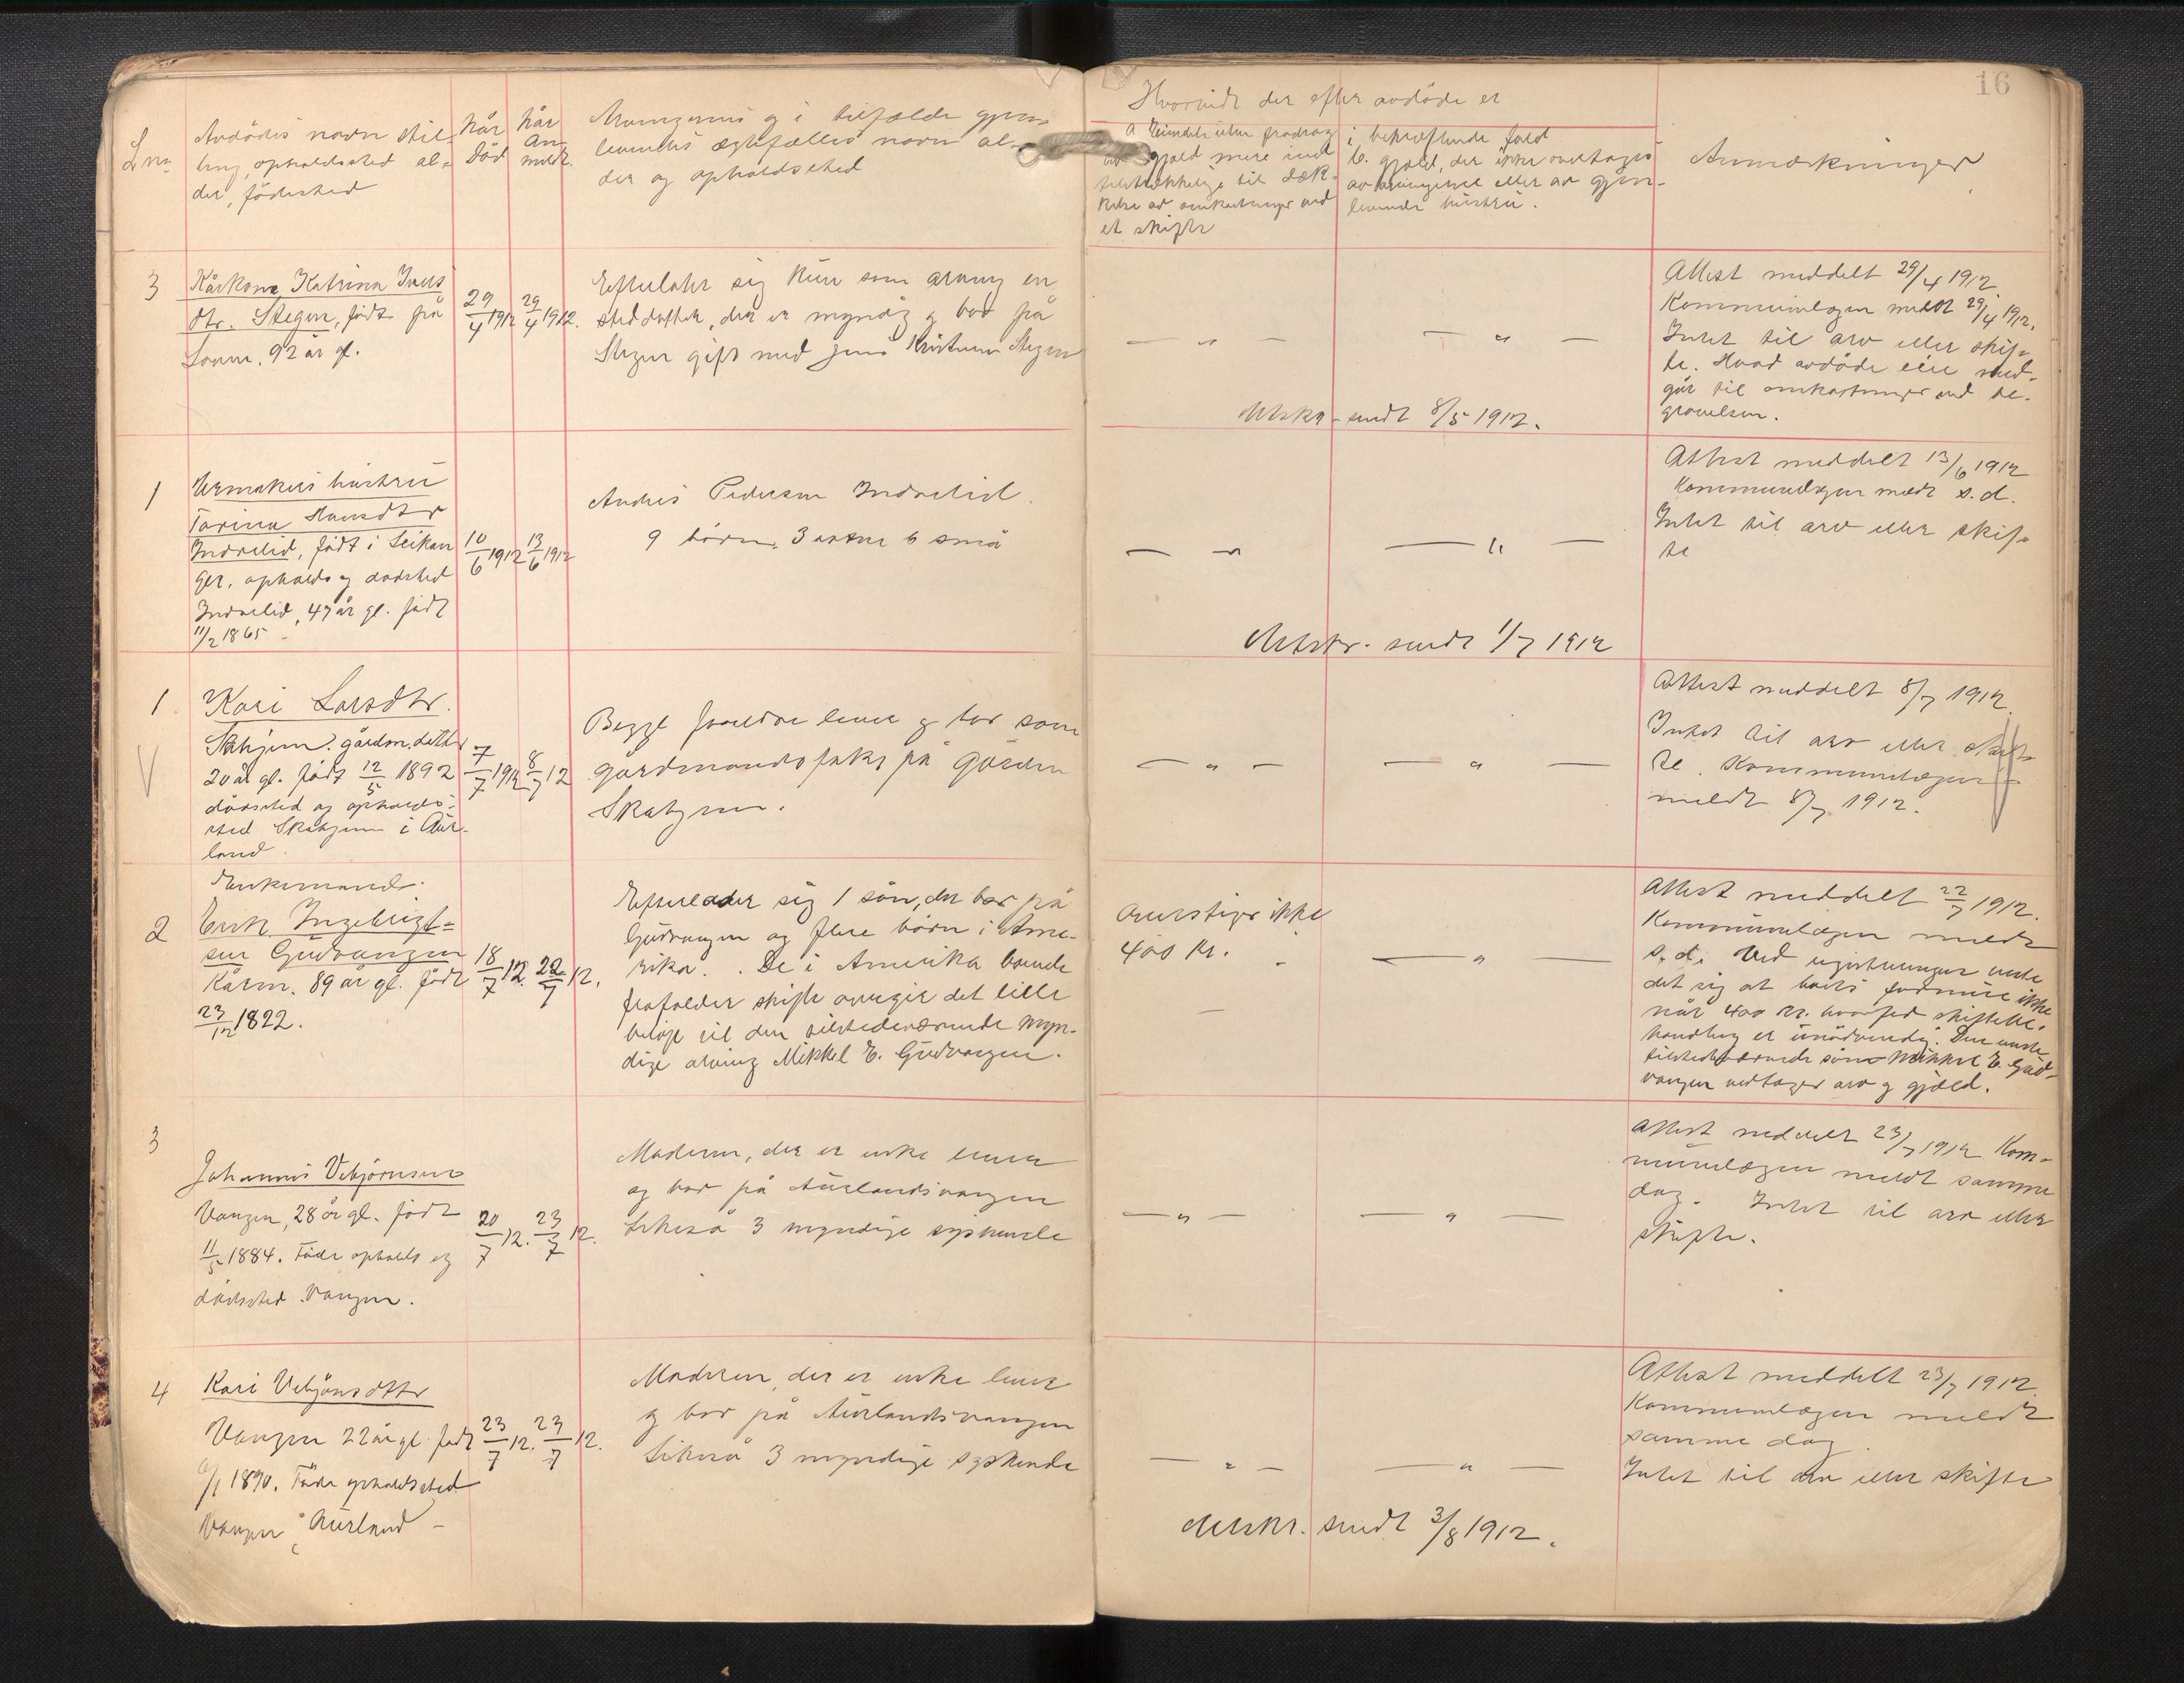 16
Lnr.
Avdödes navn stil-
ling, opholdssted al-
der, födested
Når
död
Når
an-
meldt.
Arvingernes og i tilfælde gjen-
levendes ægtefælles navn al-
der og opholdssted
Hvorvidt der efter avdöde er
a. Eiendele uten fradrag
av gjæld mere end
tilstrækkelige til dæk-
kelse av omkostninger ved
et skifte
i bekræftende fald
b. gjæld, der ikke overtages
av arvingerne eller av gjen-
levende hustru.
Anmerkninger
3
Kårkone Katrina Ivers
dtr. Stegen, födt på
Sonm. 92 år gl.
29/4 1912
29/4 1912.
Efterlater sig kun som arving en
steddatter, der er myndig og bor på
Stegen gift med Jens Kristensen Stegen
— " —
— " —
Utskr. sendt 8/5 1912.
Attest meddelt 29/4 1912
Kommunelægen meldt 29/4 1912.
Intet til arv eller skif-
te. Hvad avdöde eier med-
går til omkostninger ved be-
gravelsen.
1
Urmakers hustru
Tarina Hansdtr
Indrelid, födt i Leikan
ger. opholds og dödssted
Indrelid, 47 år gl. födt
11/2 1865
10/6 1912
13/6 1912
Andres Pedersen Indrelid.
9 börn, 3 voksne 6 små
— "
— " —
Utskr. sendt 1/7 1912
Attest meddelt 13/6 1912
Kommunelægen meldt s.d.
Intet til arv eller skif-
te
1.
Kari Larsdtr.
Skahjem. gårdm. datter
20 år gl. födt 12/5 1892
dödssted og opholds-
sted Skahjem i Aur-
land.
7/7 1912
8/7 12
Begge forældre lever og bor som
gårdmandsfolk på gården
Skahjem.
— " —
— " —
Attest meddelt 8/7 1912
Intet til arv eller skif-
te. Kommunelægen
meldt 8/7 1912.
Enkemand.
2
Erik Ingebrigt-
sen Gudvangen
Kårm. 89 år gl. födt
23/12 1822.
18/7 12.
22/7 12.
Efterlader sig 1 sön, der bor på
Gudvangen og flere börn i Ame-
rika. De i Amerika boende
frafalder skifte overgir det lille
belöp til den tilstedeværende myn-
dige arving Mikkel E. Gudvangen.
Overstiger ikke
400 kr.
— " —
Attest meddelt 22/7 1912.
Kommunelægen meldt
s.d. Ved registreringen viste
det sig at boets formue ikke
når 400 kr. hvorfor skiftebe-
handling er unödvendig. Den eneste
tilstedeværende sön Mikkel E. Gud-
vangen vedtager arv og gjæld.
3
Johannes Vebjörnsen
Vangen, 28 år gl. födt
11/5 1884. Föde opholds og
dödssted Vangen.
20/7 12.
23/7 12.
Moderen, der er enke lever
og bor på Aurlandsvangen
Likeså 3 myndige syskende
— " —
— " —
Attest meddelt 23/7 1912 Kom-
munelægen meldt samme
dag. Intet til arv eller
skifte.
4
Kari Vebjörnsdttr
Vangen 22 år gl. födt
6/1 1890. Föde opholdssted
Vangen i Aurland —
23/7 12.
23/7 12.
Moderen, der er enke lever
og bor på Aurlandsvangen
Likeså 3 myndige syskende
— " —
— " —
Utskr. sendt 3/8 1912.
Attest meddelt 23/7 1912.
Kommunelægen meldt
samme dag.
Intet til arv eller skifte